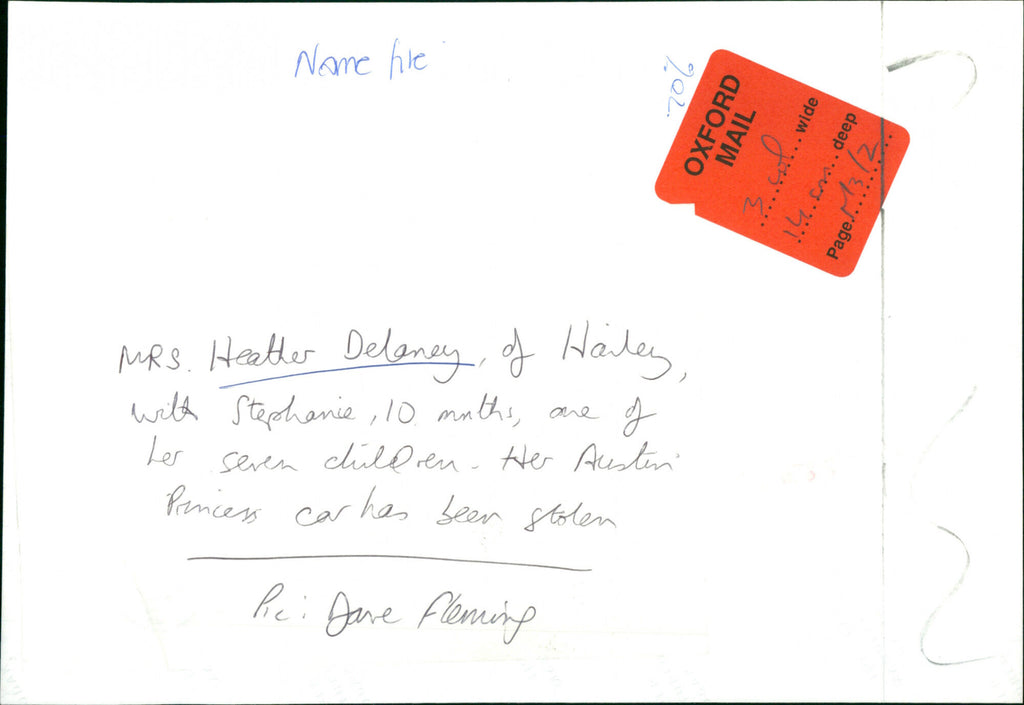 Name file
70%
OXFORD
MAIL
3 col wide
14 cm deep
Page M3/2
MRS. Heather Delaney, of Hailey,
with Stephanie, 10 months, one of
her seven children. Her Austin
Princess car has been stolen
Pic: Dave Fleming